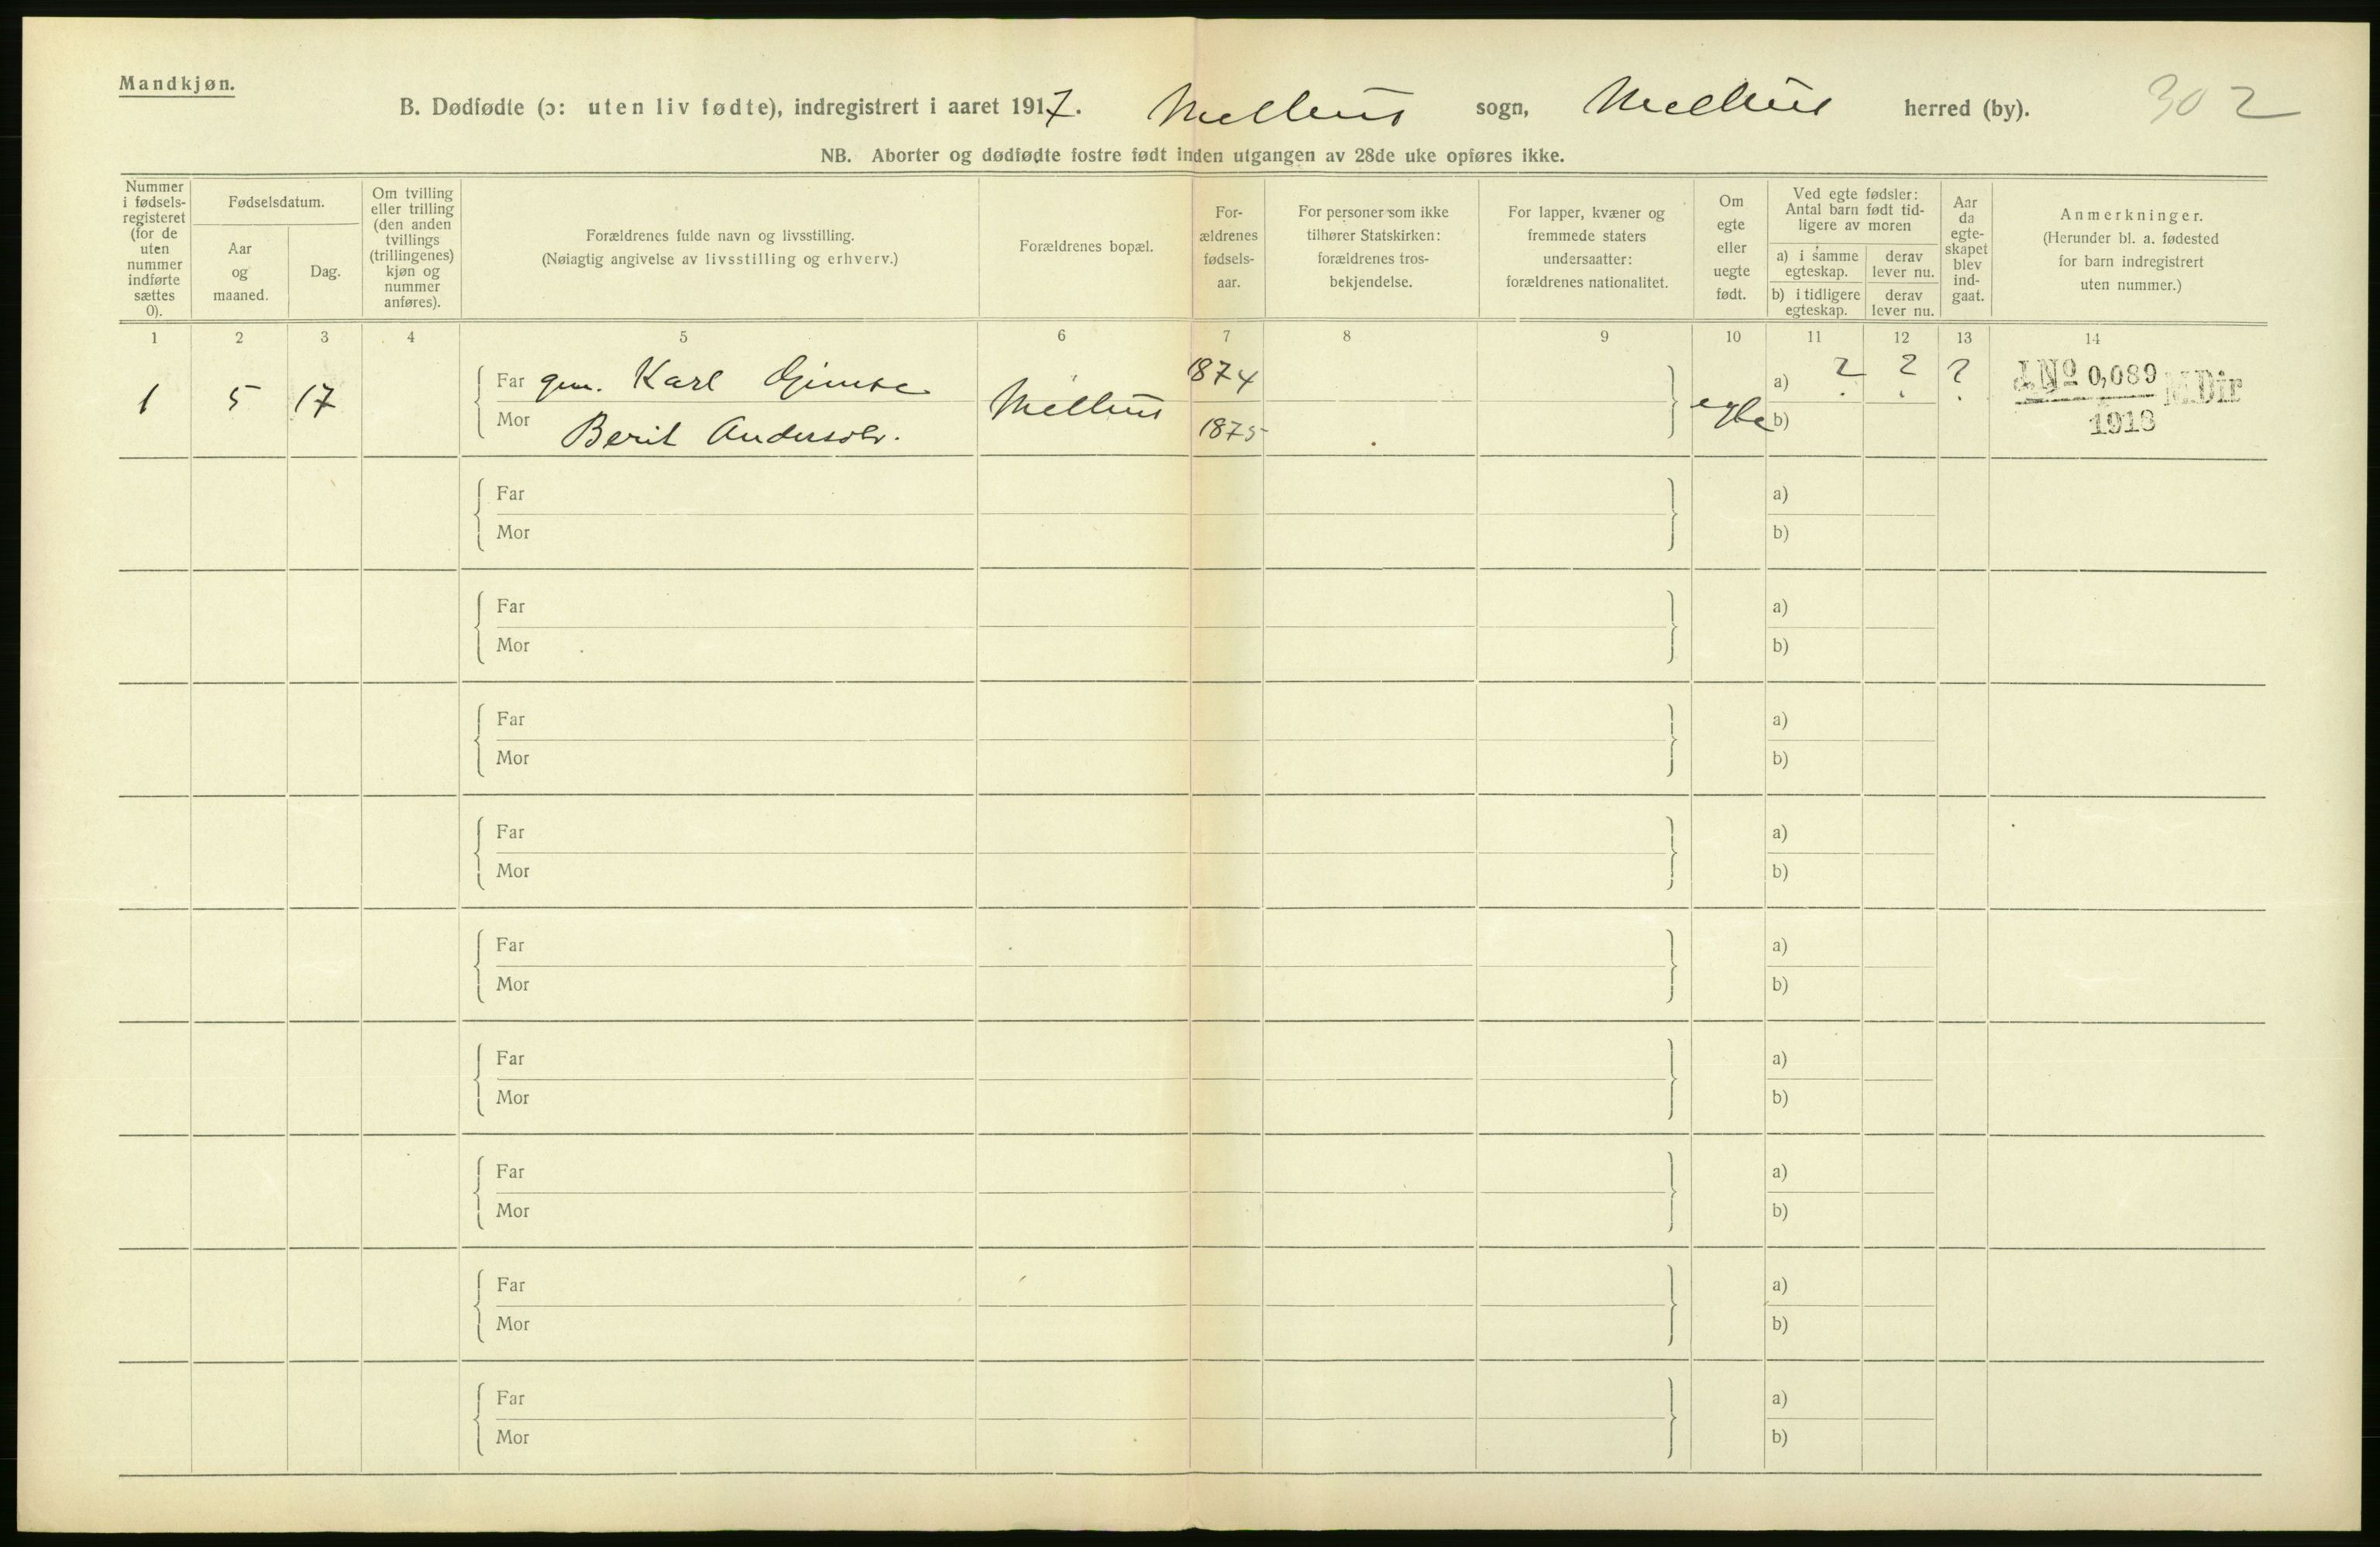 Mandkjøn.
B. Dødfødte (ɔ: uten liv fødte), indregistrert i aaret 1917. Melhus sogn, Melhus herred (by). 302
NB. Aborter og dødfødte fostre født inden utgangen av 28de uke opføres ikke.
Nummer i fødsels-registeret (for de uten nummer indførte sættes 0).
Fødselsdatum.
Aar og maaned.
Dag.
Om tvilling eller trilling (den anden tvillings (trillingenes) kjøn og nummer anføres).
Forældrenes fulde navn og livsstilling.
(Nøiagtig angivelse av livsstilling og erhverv.)
Forældrenes bopæl.
For-ældrenes fødsels-aar.
For personer som ikke tilhører Statskirken: forældrenes tros-bekjendelse.
For lapper, kvæner og fremmede staters undersaatter: forældrenes nationalitet.
Om egte eller uegte født.
Ved egte fødsler: Antal barn født tid-ligere av moren
a) i samme egteskap.
derav lever nu.
b) i tidligere egteskap.
derav lever nu.
Aar da egte-skapet blev ind-gaat.
Anmerkninger.
(Herunder bl. a. fødested for barn indregistrert uten nummer.)
1 2 3 4 5 6 7 8 9 10 11 12 13 14
1 5 17 Far gm. Karl Gimse Melhus 1874 egte a) ? ? ? J.No 0,089 M.Dir
Mor Berit Andersdtr. 1875 b) 1918
Far a)
Mor b)
Far a)
Mor b)
Far a)
Mor b)
Far a)
Mor b)
Far a)
Mor b)
Far a)
Mor b)
Far a)
Mor b)
Far a)
Mor b)
Far a)
Mor b)